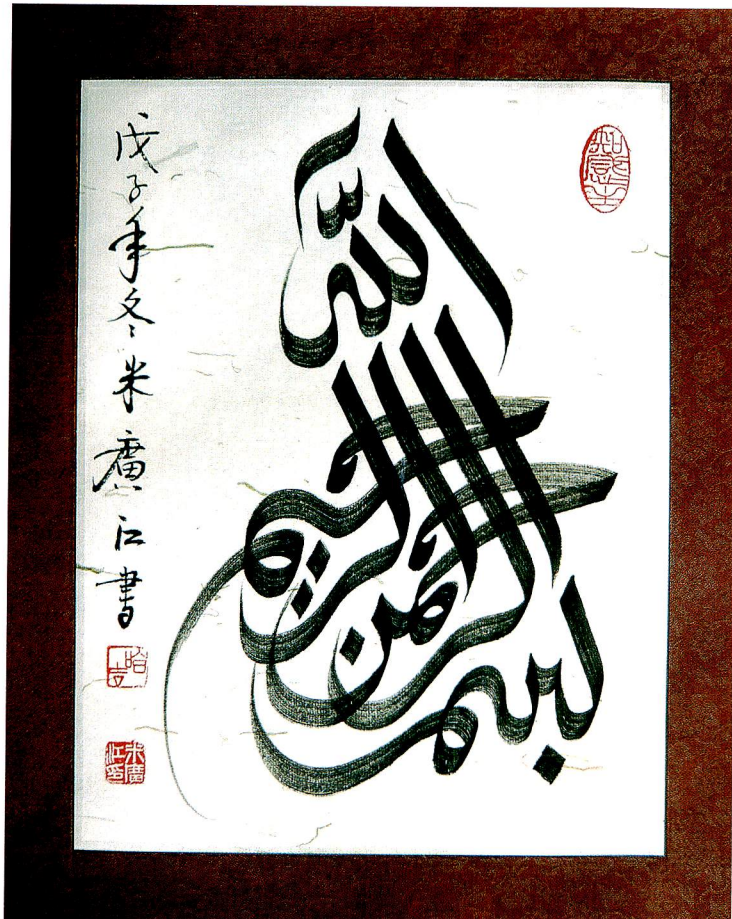 بسم الله الرحمن الرحيم
戊子年冬米廣江書
哈吉
米廣江印